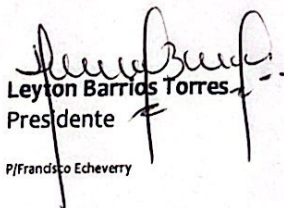 Leyton Barrios Torres
Presidente
P/Francisco Echeverry